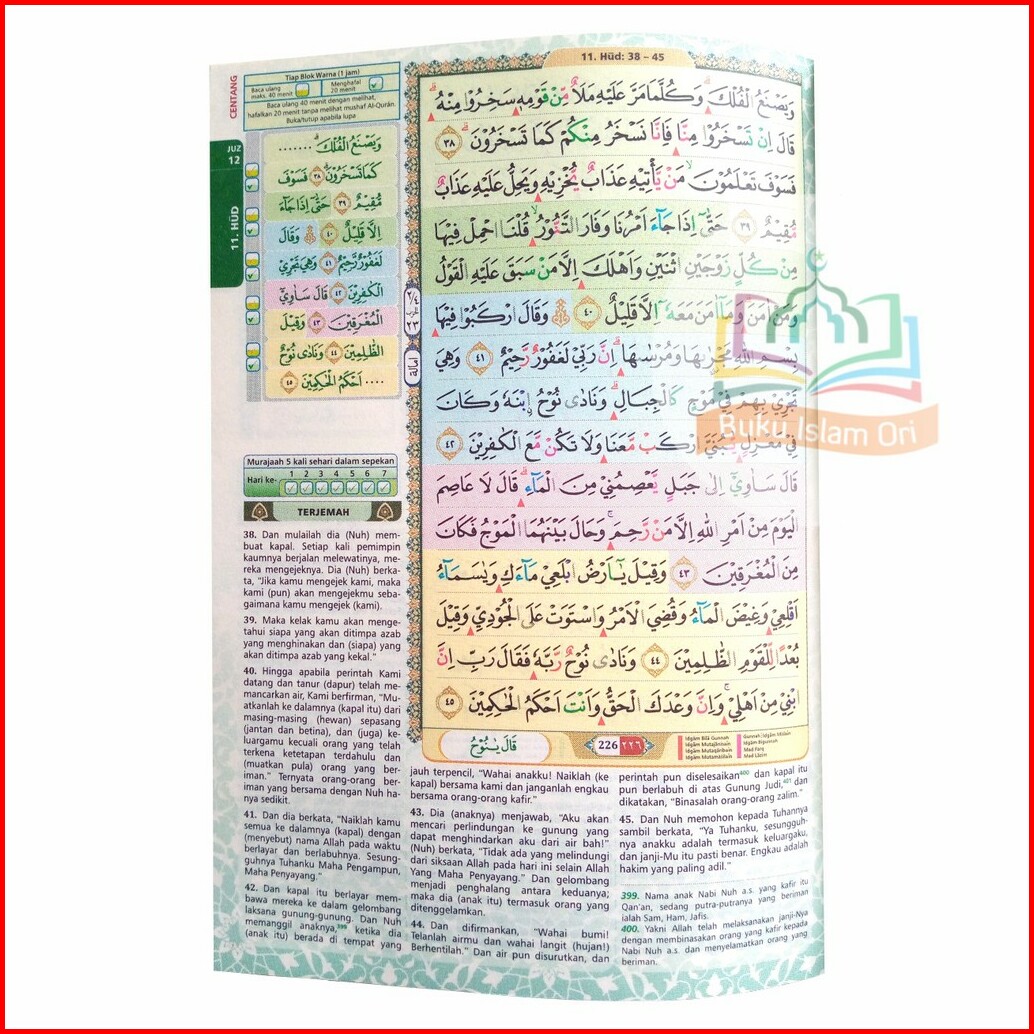 11. Hūd: 38 – 45
CENTANG
Tiap Blok Warna (1 jam)
Baca ulang
maks. 40 menit
Menghafal
20 menit
Baca ulang 40 menit dengan melihat,
hafalkan 20 menit tanpa melihat mushaf Al-Qurán.
Buka/tutup apabila lupa
JUZ
12
11. HŪD
وَيَصْنَعُ الْفُلْكَۗ .......
كَمَا تَسْخَرُوْنَۗ ٣٨ فَسَوْفَ
مُّقِيْمٌ ٣٩ حَتّٰىٓ اِذَا جَاۤءَ
اِلَّا قَلِيْلٌ ٤٠ ۞ وَقَالَ
لَغَفُوْرٌ رَّحِيْمٌ ٤١ وَهِيَ تَجْرِيْ
الْكٰفِرِيْنَ ٤٢ قَالَ سَاٰوِيْٓ
الْمُغْرَقِيْنَ ٤٣ وَقِيْلَ
الظّٰلِمِيْنَ ٤٤ وَنَادٰى نُوْحٌ
.... اَحْكَمُ الْحٰكِمِيْنَ ٤٥
وَيَصْنَعُ الْفُلْكَۗ وَكُلَّمَا مَرَّ عَلَيْهِ مَلَاٌ مِّنْ قَوْمِهٖ سَخِرُوْا مِنْهُۗ
قَالَ اِنْ تَسْخَرُوْا مِنَّا فَاِنَّا نَسْخَرُ مِنْكُمْ كَمَا تَسْخَرُوْنَۗ ٣٨
فَسَوْفَ تَعْلَمُوْنَۙ مَنْ يَّأْتِيْهِ عَذَابٌ يُّخْزِيْهِ وَيَحِلُّ عَلَيْهِ عَذَابٌ
مُّقِيْمٌ ٣٩ حَتّٰىٓ اِذَا جَاۤءَ اَمْرُنَا وَفَارَ التَّنُّوْرُۙ قُلْنَا احْمِلْ فِيْهَا
مِنْ كُلٍّ زَوْجَيْنِ اثْنَيْنِ وَاَهْلَكَ اِلَّا مَنْ سَبَقَ عَلَيْهِ الْقَوْلُ
وَمَنْ اٰمَنَۗ وَمَآ اٰمَنَ مَعَهٗٓ اِلَّا قَلِيْلٌ ٤٠ ۞ وَقَالَ ارْكَبُوْا فِيْهَا
بِسْمِ اللّٰهِ مَجْرٰ۪ىهَا وَمُرْسٰىهَاۗ اِنَّ رَبِّيْ لَغَفُوْرٌ رَّحِيْمٌ ٤١ وَهِيَ
تَجْرِيْ بِهِمْ فِيْ مَوْجٍ كَالْجِبَالِۗ وَنَادٰى نُوْحُ ِۨابْنَهٗ وَكَانَ
فِيْ مَعْزِلٍ يّٰبُنَيَّ ارْكَبْ مَّعَنَا وَلَا تَكُنْ مَّعَ الْكٰفِرِيْنَ ٤٢
قَالَ سَاٰوِيْٓ اِلٰى جَبَلٍ يَّعْصِمُنِيْ مِنَ الْمَاۤءِۗ قَالَ لَا عَاصِمَ
الْيَوْمَ مِنْ اَمْرِ اللّٰهِ اِلَّا مَنْ رَّحِمَۚ وَحَالَ بَيْنَهُمَا الْمَوْجُ فَكَانَ
مِنَ الْمُغْرَقِيْنَ ٤٣ وَقِيْلَ يٰٓاَرْضُ ابْلَعِيْ مَاۤءَكِ وَيٰسَمَاۤءُ
اَقْلِعِيْ وَغِيْضَ الْمَاۤءُ وَقُضِيَ الْاَمْرُ وَاسْتَوَتْ عَلَى الْجُوْدِيِّ وَقِيْلَ
بُعْدًا لِّلْقَوْمِ الظّٰلِمِيْنَ ٤٤ وَنَادٰى نُوْحٌ رَّبَّهٗ فَقَالَ رَبِّ اِنَّ
ابْنِيْ مِنْ اَهْلِيْۚ وَاِنَّ وَعْدَكَ الْحَقُّ وَاَنْتَ اَحْكَمُ الْحٰكِمِيْنَ ٤٥
امالة
قَالَ يٰنُوْحُ
226 ٢٢٦
Idgām Bilā Gunnah
Idgām Mutajānisain
Idgām Mutaqāribain
Idgām Mutamāṡilain
Mad Farq
Mad Lāzim
Buku Islam Ori
Murajaah 5 kali sehari dalam sepekan
Hari ke- 1 2 3 4 5 6 7
TERJEMAH
38. Dan mulailah dia (Nuh) mem-
buat kapal. Setiap kali pemimpin
kaumnya berjalan melewatinya, me-
reka mengejeknya. Dia (Nuh) berka-
ta, "Jika kamu mengejek kami, maka
kami (pun) akan mengejekmu seba-
gaimana kamu mengejek (kami).
39. Maka kelak kamu akan menge-
tahui siapa yang akan ditimpa azab
yang menghinakan dan (siapa) yang
akan ditimpa azab yang kekal."
40. Hingga apabila perintah Kami
datang dan tanur (dapur) telah me-
mancarkan air, Kami berfirman, "Mu-
atkanlah ke dalamnya (kapal itu) dari
masing-masing (hewan) sepasang
(jantan dan betina), dan (juga) ke-
luargamu kecuali orang yang telah
terkena ketetapan terdahulu dan
(muatkan pula) orang yang ber-
iman." Ternyata orang-orang ber-
iman yang bersama dengan Nuh ha-
nya sedikit.
41. Dan dia berkata, "Naiklah kamu
semua ke dalamnya (kapal) dengan
(menyebut) nama Allah pada waktu
berlayar dan berlabuhnya. Sesung-
guhnya Tuhanku Maha Pengampun,
Maha Penyayang."
42. Dan kapal itu berlayar mem-
bawa mereka ke dalam gelombang
laksana gunung-gunung. Dan Nuh
memanggil anaknya,³⁹⁹ ketika dia
(anak itu) berada di tempat yang
jauh terpencil, "Wahai anakku! Naiklah (ke
kapal) bersama kami dan janganlah engkau
bersama orang-orang kafir."
43. Dia (anaknya) menjawab, "Aku akan
mencari perlindungan ke gunung yang
dapat menghindarkan aku dari air bah!"
(Nuh) berkata, "Tidak ada yang melindungi
dari siksaan Allah pada hari ini selain Allah
Yang Maha Penyayang." Dan gelombang
menjadi penghalang antara keduanya;
maka dia (anak itu) termasuk orang yang
ditenggelamkan.
44. Dan difirmankan, "Wahai bumi!
Telanlah airmu dan wahai langit (hujan!)
Berhentilah." Dan air pun disurutkan, dan
perintah pun diselesaikan⁴⁰⁰ dan kapal itu
pun berlabuh di atas Gunung Judi,⁴⁰¹ dan
dikatakan, "Binasalah orang-orang zalim."
45. Dan Nuh memohon kepada Tuhannya
sambil berkata, "Ya Tuhanku, sesungguh-
nya anakku adalah termasuk keluargaku,
dan janji-Mu itu pasti benar. Engkau adalah
hakim yang paling adil."
399. Nama anak Nabi Nuh a.s. yang kafir itu
Qan'an, sedang putra-putranya yang beriman
ialah Sam, Ham, Jafis.
400. Yakni Allah telah melaksanakan janji-Nya
dengan membinasakan orang yang kafir kepada
Nabi Nuh a.s. dan menyelamatkan orang yang
beriman.